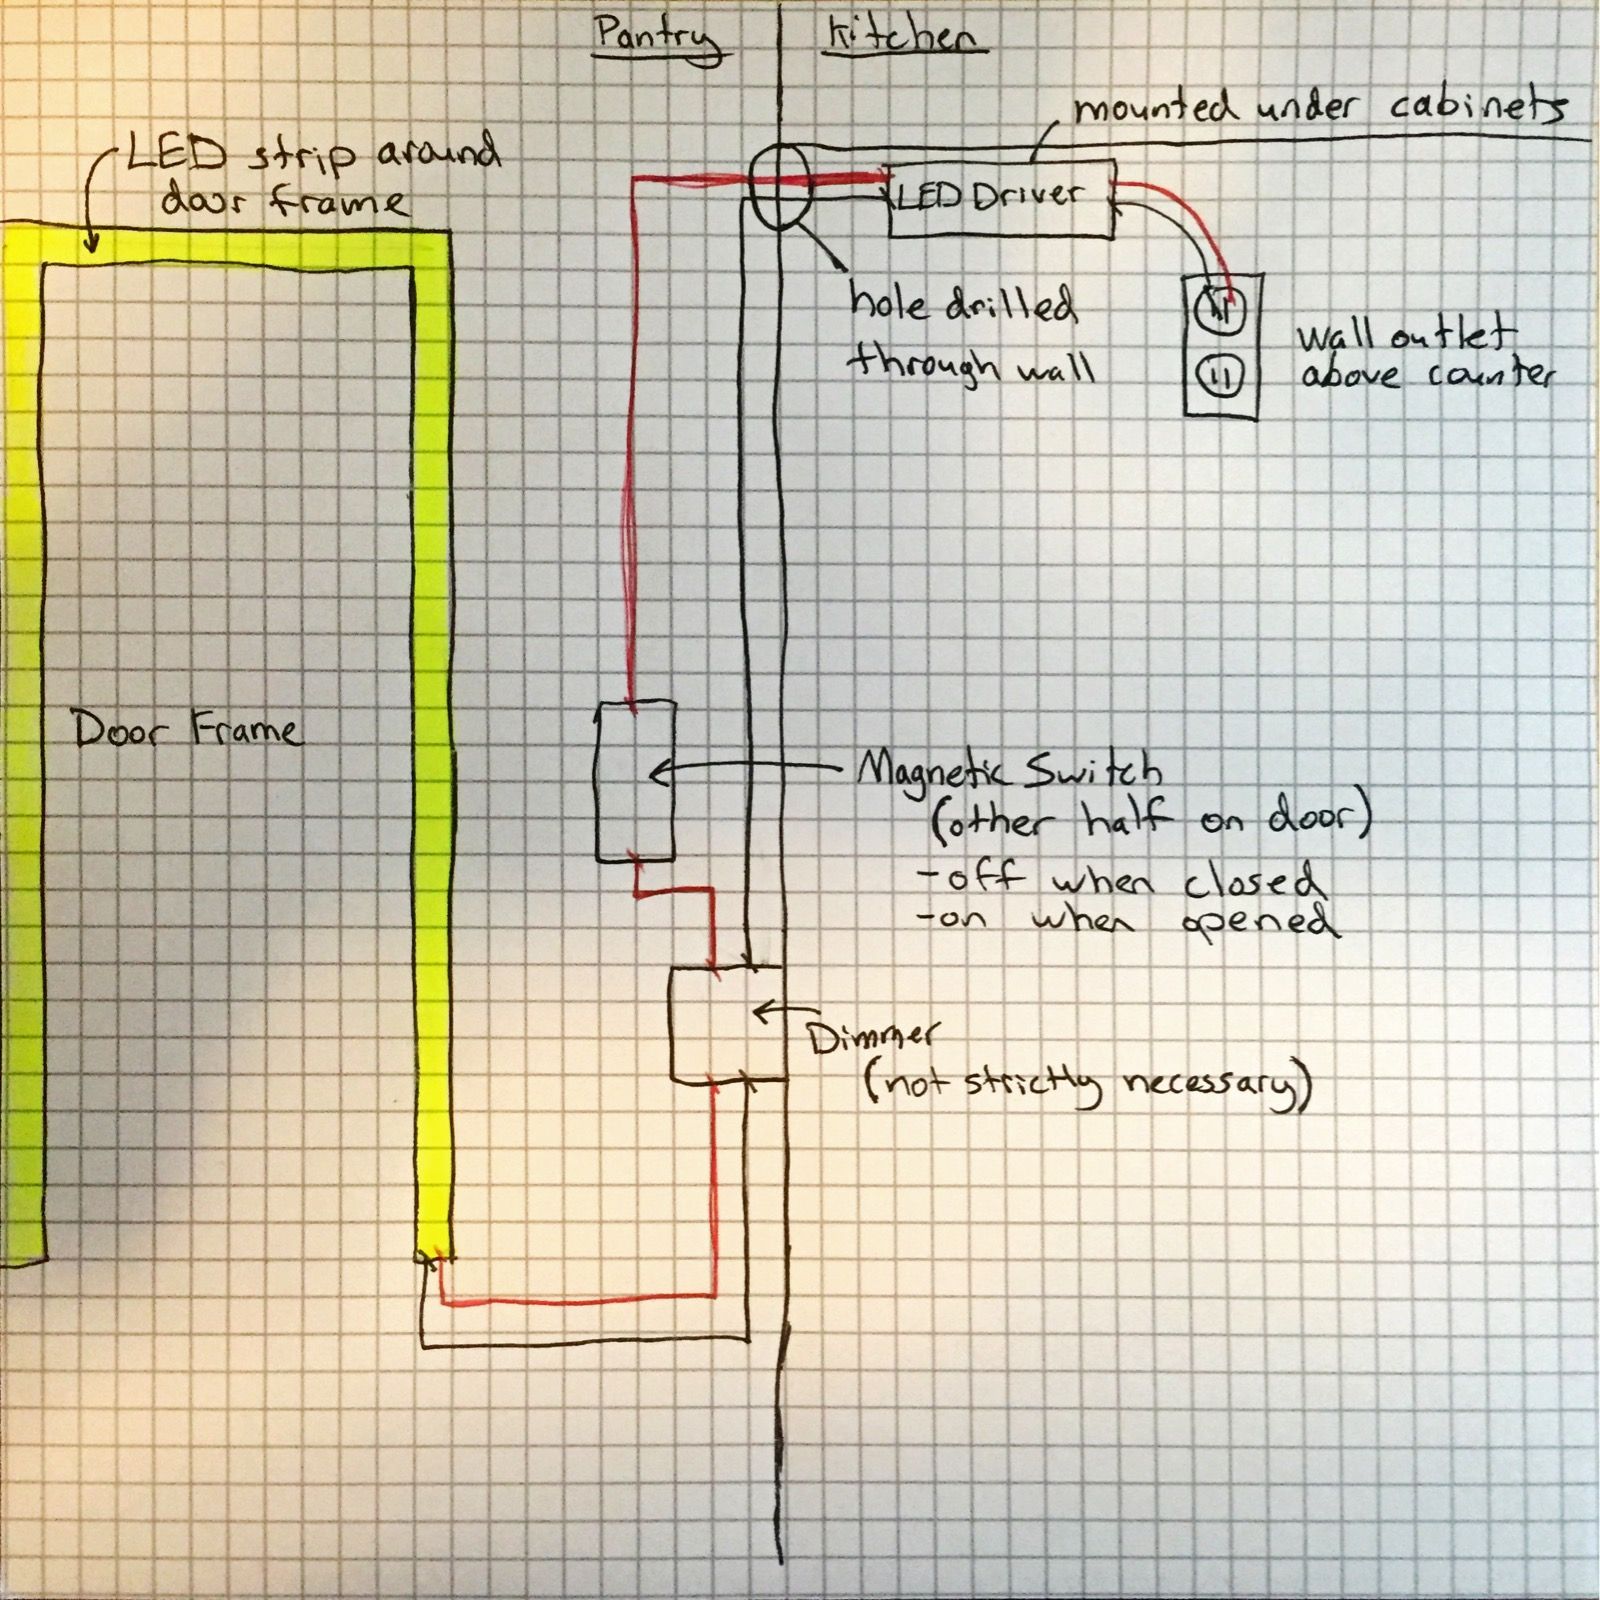 Pantry
Kitchen
mounted under cabinets
LED strip around
door frame
LED Driver
hole drilled
through wall
wall outlet
above counter
Door Frame
Magnetic Switch
(other half on door)
-off when closed
-on when opened
Dimmer
(not strictly necessary)